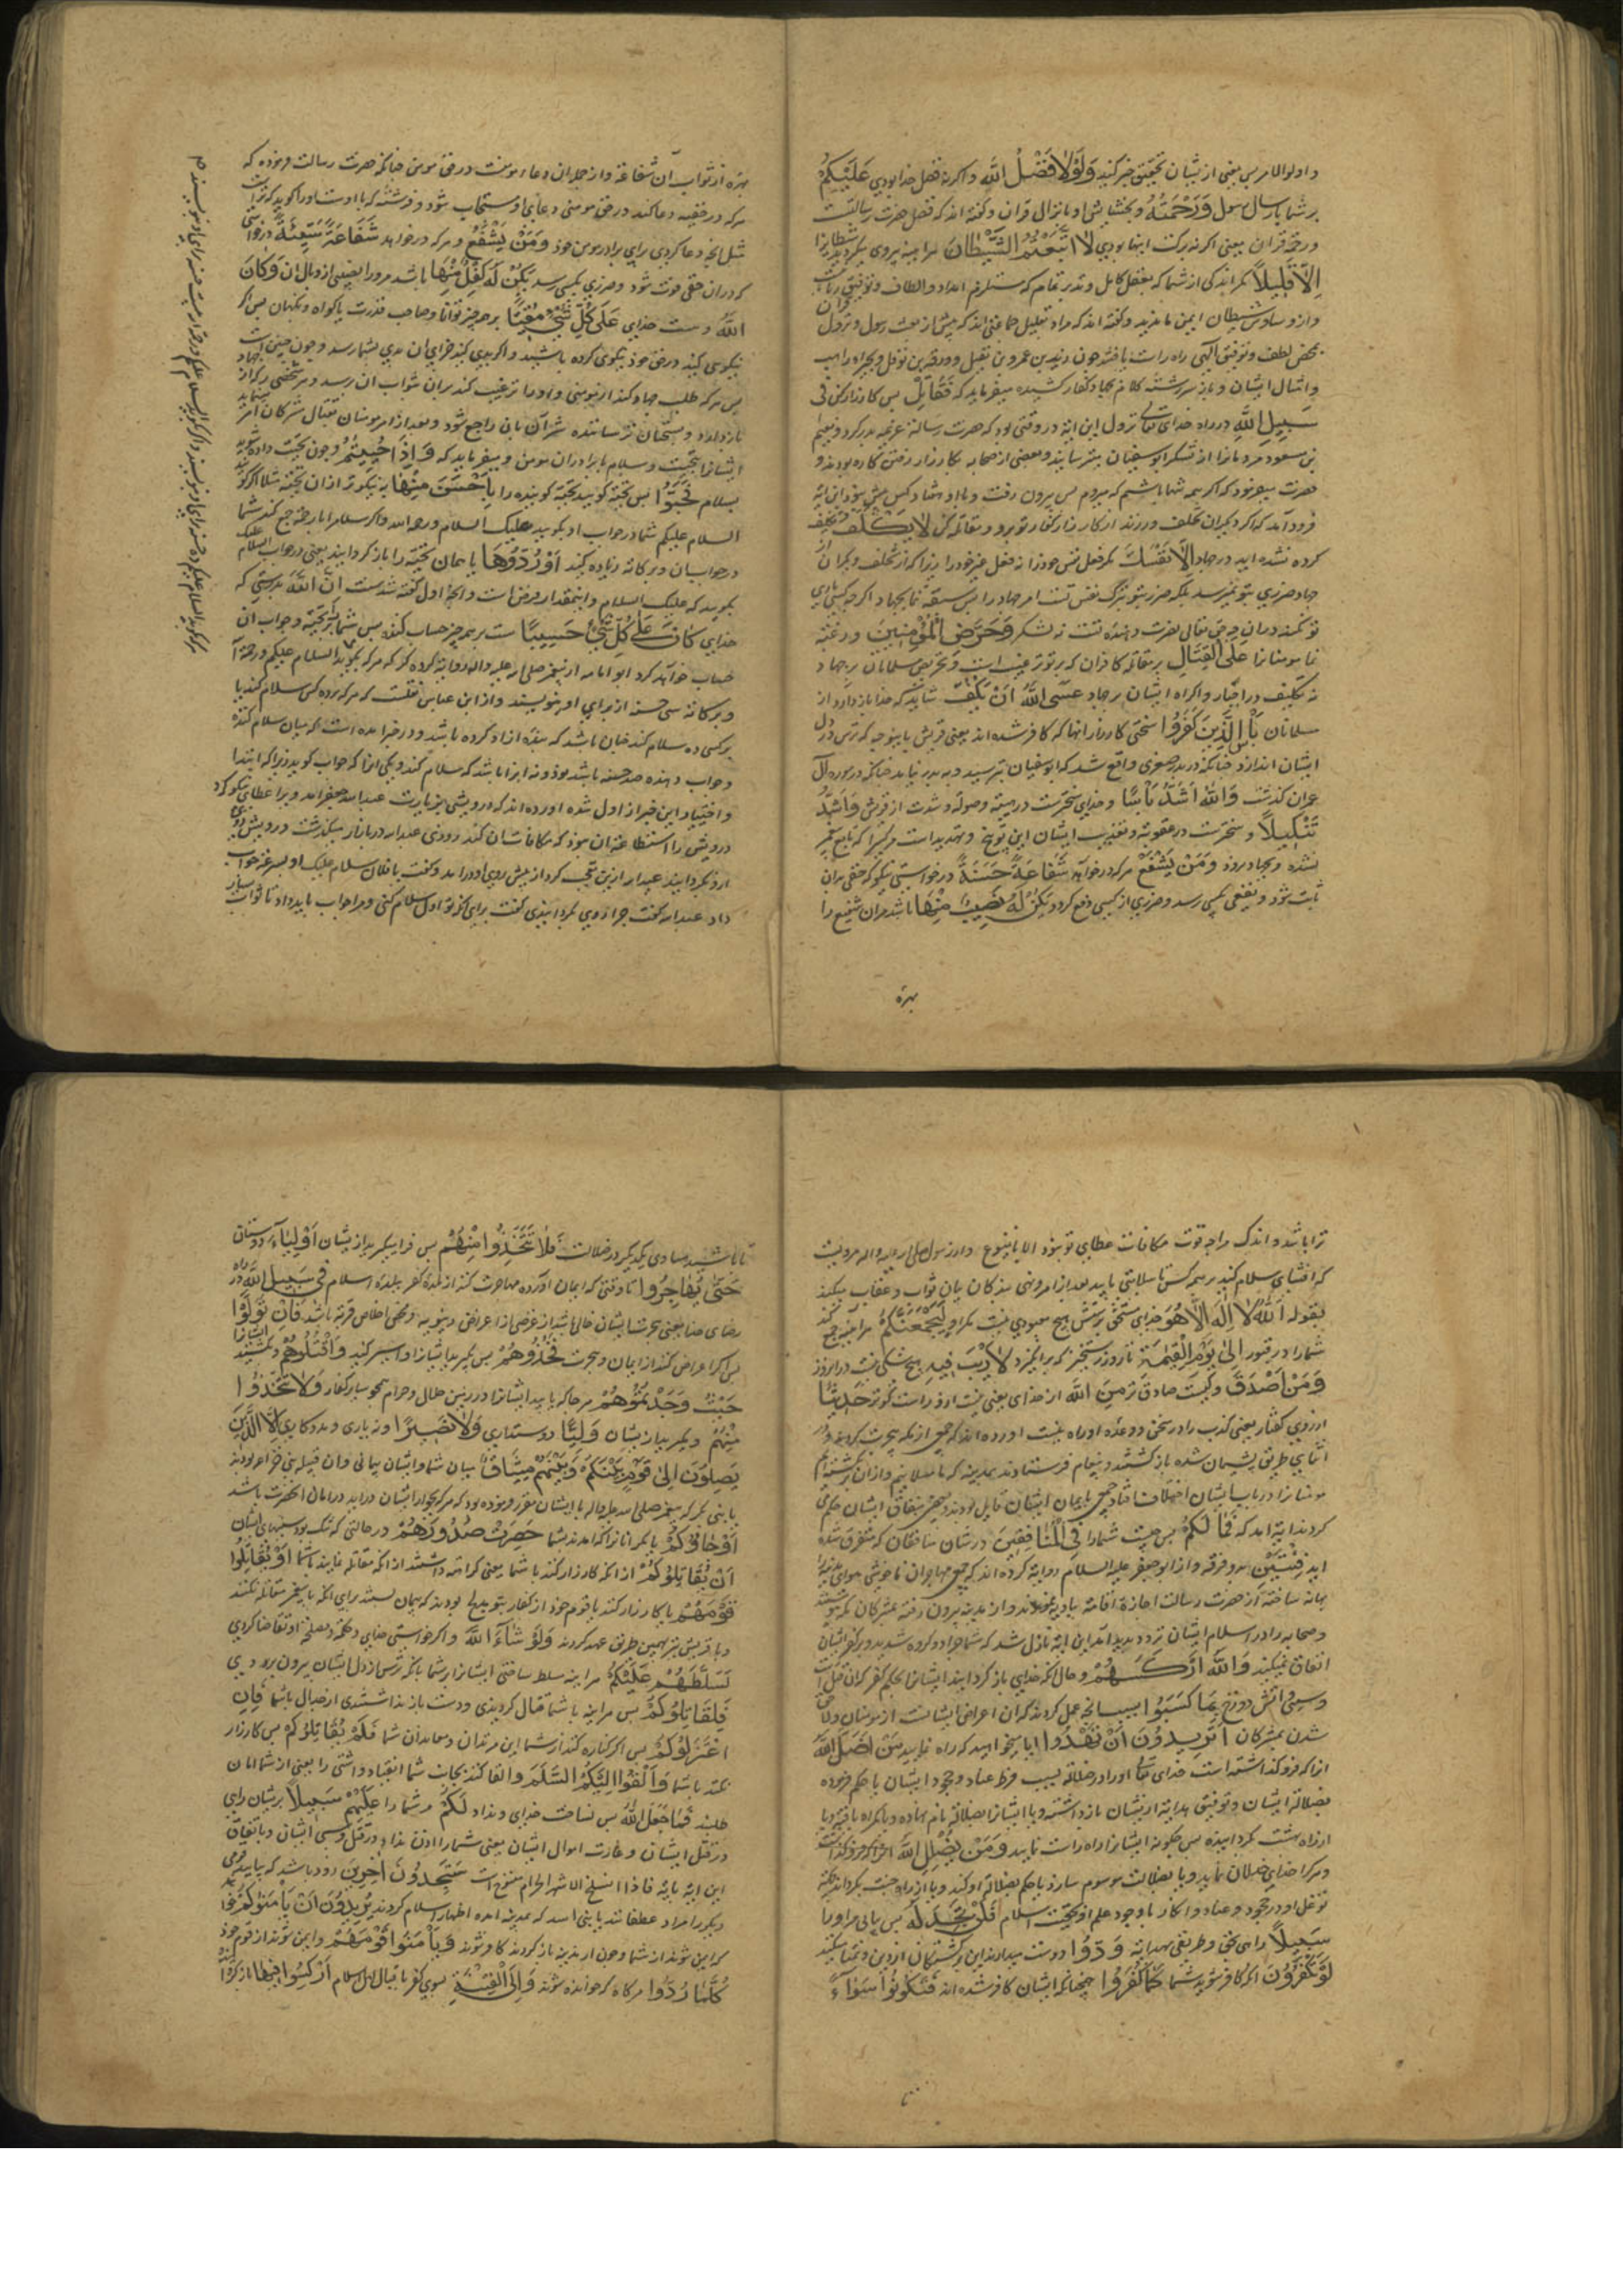 و اولوالامر پس یعنی از یشان تحقیق خبر کنید وَلَوْلَا فَضْلُ اللَّهِ و اکر نه فضل خدا بودی عَلَيْكُمْ
بر شما بارسال رسول وَرَحْمَتُهُ و بخشایش او بانزال قران و کفته اند که فضل حضرت رسالتست
و رحمة قران یعنی اکر نه برکت اینها بودی لَاتَّبَعْتُمُ الشَّيْطَانَ هر اینه پیروی میکردید شیطانرا
إِلَّا قَلِيلًا مکر اندکی از شما که بعقل کامل و تدبر تمام که مستلزم امداد و الطاف و توفیق ربانیست
و از وساوس شیطان ایمن ماندید و کفته اند که مراد بقلیل جماعتی اند که پیش از بعثت رسول و نزول قران
بمحض لطف و توفیق الهی راه راست یافتند چون زید بن عمرو بن نفیل و ورقه بن نوفل و بحیراء راهب
و امثال ایشان و باز سر رشته کلام بجهاد کفار کشیده میفرماید که فَقَاتِلْ پس کارزار کن فِي
سَبِيلِ اللَّهِ در راه خدای تعالی نزول این ایة در وقتی بود که حضرت رسالة عزیمة بدر کرد و نعیم
بن مسعود مردمانرا از لشکر ابوسفیان بترسانید و بعضی از صحابه بکارزار رفتن کاره بودند و
حضرت میفرمود که اکر همه تنها باشم که میروم پس بیرون رفت و با او هفتاد کس بیش نبود این ایة
فرود آمد که اکر دیکران تخلف ورزند از کارزار کفار تو برو و مقاتله کن لَا تُكَلَّفُ تکلیف
کرده نشده اید در جهاد إِلَّا نَفْسَكَ مکر فعل نفس خود را نه فعل غیر خود را زیرا که از تخلف دیکران
جهاد ضرری بتو نمیرسد بلکه ضرر بتو بترک نفس تست امر جهاد را پس سبقة نما بجهاد اکرچه کسی یاری
تو نکند در آن چه حق تعالی نصرت دهنده تست نه لشکر وَحَرِّضِ الْمُؤْمِنِينَ و رغبة
نما مومنانرا عَلَى الْقِتَالِ بر مقاتله کافران که بر تو ترغیب است و تحریض مسلمانان بر جهاد
نه تکلیف در اجبار و اکراه ایشان بر جهاد عَسَى اللَّهُ أَنْ يَكُفَّ شاید که خدا باز دارد از
مسلمانان بَأْسَ الَّذِينَ كَفَرُوا سختی کارزار انها که کافر شده اند یعنی قریش باینوجه که ترس در دل
ایشان اندازد چنانکه در بدر صغری واقع شد که ابوسفیان بترسید و به بدر نیامد چنانکه در سوره آل
عمران کذشت وَاللَّهُ أَشَدُّ بَأْسًا و خدای سختترست در هیبة و صولة و شدت از قریش وَأَشَدُّ
تَنْكِيلًا و سختترست در عقوبة و تعذیب ایشان این توبیخ و تهدید است هر کسیرا که تابع پیغمبر
نشده و بجهاد نرود وَمَنْ يَشْفَعْ هر که درخواهد شَفَاعَةً حَسَنَةً درخواستی نیکو که حقی بدان
ثابت شود و نفعی بکسی رسد و ضرری از کسی دفع کردد يَكُنْ لَهُ نَصِيبٌ مِنْهَا باشد مر ان شفیع را
بهرة
بهرة از ثواب آن شفاعة و از جمله ان دعاء مومنست در حق مومن چنانکه حضرت رسالت فرموده که
هر که در غیبه دعا کند در حق مومنی دعای او مستجاب شود و فرشته که با اوست او را کوید که تراست
مثل انچه دعا کردی برای برادر مومن خود وَمَنْ يَشْفَعْ و هر که درخواهد شَفَاعَةً سَيِّئَةً درخواستی
که در ان حقی فوت شود و ضرری بکسی رسد يَكُنْ لَهُ كِفْلٌ مِنْهَا باشد مر او را نصیبی از وبال ان وَكَانَ
اللَّهُ و هست خدای عَلَى كُلِّ شَيْءٍ مُقِيتًا بر همه چیز توانا و صاحب قدرت یا کواه و نکهبان پس اکر
نیکویی کنید در حق خود نیکویی کرده باشید و اکر بدی کنید جزای ان بدی بشما رسد و چون چنین است
پس هر که طلب جهاد کند از مومنی و او را ترغیب کند بران ثواب ان رسد و هر شخصی را که از جهاد
باز دارد و بسخنان ترساننده شر آن بان راجع شود و بعد از امر مومنان بقتال مشرکان امر میفرماید
ایشانرا بتحیت و سلام با برادران مومن و میفرماید که وَإِذَا حُيِّيتُمْ و چون تحیت داده شوید
بسلام فَحَيُّوا پس تحیة کویید تحیة کوینده را بِأَحْسَنَ مِنْهَا به نیکوتر از ان تحیة مثلا اکر کوید
السلام علیکم شما در جواب او بکویید علیک السلام و رحمة الله و اکر سلام را با رحمة جمع کند شما
در جواب ان و برکاته زیاده کنید أَوْ رُدُّوهَا یا همان تحیة را باز کردانید یعنی در جواب السلام علیک
بکویید که علیک السلام و اینمقدار فرض است و انچه اول کفته شد سنت إِنَّ اللَّهَ بدرستی که
خدای كَانَ عَلَى كُلِّ شَيْءٍ حَسِيبًا هست بر همه چیز حساب کننده پس شما را بر تحیة و جواب ان
حساب خواهد کرد ابو امامه از پیغمبر صلی الله علیه واله روایة کرده که هر که بکوید السلام علیکم و رحمة الله
و برکاته سی حسنه از برای او بنویسند و از ابن عباس نقلست که هر که بر ده کس سلام کند یا
بر کسی ده سلام کند چنان باشد که بنده ازاد کرده باشد و در خبر امده است که میان سلام کننده
و جواب دهنده صد حسنه باشد نود و نه انرا باشد که سلام کند و یکی انرا که جواب کوید زیرا که ابتدا
و اختیار این خیر از اول شده اورده اند که درویشی بزیارت عبد الله جعفر امد و برا عطای نیکو کرد
درویش را استطاعة ان نبود که مکافات ان کند روزی عبد الله در بازار میکذشت درویش روی
از او بکردانید عبد الله ازین تعجب کرد از پیش روی او درامد و کفت یا فلان سلام علیک او بسرعة جواب
داد عبد الله کفت چرا روی بکردانیدی کفت برای انکه تو اول سلام کنی و مرا جواب باید داد تا ثواب بسیار
هر که کوید السلام علیکم ده حسنه برای او بنویسند و اکر کوید السلام علیکم و رحمة الله بیست حسنه برای او بنویسند
ترا باشد و اندک مرا چه قوت مکافات عطای تو نبود الا باینوع و از رسول صلی الله علیه واله مرویست
که افشای سلام کنید بر همه کس تا سلامتی یابید بعد از امر و نهی بندکان بیان ثواب و عقاب میکند
بقوله اللَّهُ لَا إِلَهَ إِلَّا هُوَ خدای مستحق پرستش هیچ معبودی نیست مکر او لَيَجْمَعَنَّكُمْ هر اینه جمع کند
شما را در قبور إِلَى يَوْمِ الْقِيَمَةِ تا روز رستخیز که بر انکیزد لَا رَيْبَ فِيهِ هیچ شکی نیست در انروز
وَمَنْ أَصْدَقُ و کیست صادق تر مِنَ اللَّهِ از خدای یعنی نیست ازو راست کوتر حَدِيثًا
از روی کفتار یعنی کذب را در سخن و وعده او راه نیست اورده اند که جمعی از مکه هجرت کردند و در
اثنای طریق پشیمان شده باز کشتند و پیغام فرستادند بمدینه که ما مسلمانیم و از ان برنکشته ایم
مومنانرا در باب ایشان اختلاف افتاد جمعی بایمان ایشان قایل بودند و بعضی بنفاق ایشان حکم می
کردند ایة امد که فَمَا لَكُمْ پس چیست شما را فِي الْمُنَافِقِينَ در شان منافقان که متفرق شده
اید فِئَتَيْنِ بدو فرقه و از ابو جعفر علیه السلام روایة کرده اند که جمعی مهاجران ناخوشی هوای مدینه را
بهانه ساخته از حضرت رسالت اجازة اقامة بادیه نمودند و از مدینه بیرون رفته بمشرکان مکه پیوستند
و صحابه را در اسلام ایشان تردد پدید آمد این ایة نازل شد که شما چرا دو کروه شدید و بر کفر ایشان
اتفاق نمیکنید وَاللَّهُ أَرْكَسَهُمْ و حال انکه خدای باز کردانید ایشانرا بحکم کفر که ان قتل است
و سبی و اتش دوزخ بِمَا كَسَبُوا بسبب انچه عمل کردند که ان اعراض ایشانست از مومنان و لاحق
شدن بمشرکان أَتُرِيدُونَ أَنْ تَهْدُوا ایا میخواهید که راه نمایید مَنْ أَضَلَّ اللَّهُ
انرا که فرو کذاشته است خدای تعالی او را در ضلالة بسبب فرط عناد و جحود ایشان یا حکم فرموده
بضلالة ایشان و توفیق هدایة از ایشان باز داشته و یا ایشانرا بضلالة نام نهاده و یا کمراه یافته و یا
از راه بهشت کردانیده پس چکونه ایشانرا راه راست نمایید وَمَنْ يُضْلِلِ اللَّهُ انرا که فرو کذاشت
و هر کرا خدای خذلان نماید و یا بضلالت موسوم سازد یا حکم بضلالة او کند و یا از راه جنت بکرداند بجهة
توغل او در جحود و عناد و انکار با وجود علم او بحقیت اسلام فَلَنْ تَجِدَ لَهُ پس نیابی مر او را
سَبِيلًا راهی بحق و طریقی بهدایة وَدُّوا دوست میدارند این برکشتکان از دین و تمنا میکنند
لَوْ تَكْفُرُونَ اکر کافر شوید شما كَمَا كَفَرُوا همچنانکه ایشان کافر شده اند فَتَكُونُونَ سَوَآءً
تا
تا باشید مساوی یکدیکر در ضلالت فَلَا تَتَّخِذُوا مِنْهُمْ پس فرا میکیرید از یشان أَوْلِيَاءَ دوستان
حَتَّى يُهَاجِرُوا تا وقتی که ایمان اورده مهاجرت کنند از بلده کفر ببلده اسلام فِي سَبِيلِ اللَّهِ در راه
رضای خدا یعنی هجرت ایشان خالی باشد از غرضی از اعراض دنیویه و محض اخلاص قربة باشد فَإِنْ تَوَلَّوْا
پس اکر اعراض کنند از ایمان و هجرت فَخُذُوهُمْ پس بکیرید ایشانرا و اسیر کنید وَاقْتُلُوهُمْ و بکشید ایشانرا
حَيْثُ وَجَدْتُمُوهُمْ هر جا که یابید ایشانرا در زمین حلال و حرام همچو سایر کفار وَلَا تَتَّخِذُوا
مِنْهُمْ و مکیرید از یشان وَلِيًّا دوستداری وَلَا نَصِيرًا و نه یاری و مددکاری إِلَّا الَّذِينَ
يَصِلُونَ إِلَى قَوْمٍ بَيْنَكُمْ وَبَيْنَهُمْ مِيثَاقٌ میان شما و ایشان پیمانی و ان قبیله بنی خزاعه بودند
یا بنی بکر که پیغمبر صلی الله علیه واله با ایشان مقرر فرموده بود که هر که بجوار ایشان دراید در امان انحضرت باشد
أَوْ جَاءُوكُمْ یا مکر انانرا که امدند بشما حَصِرَتْ صُدُورُهُمْ در حالتی که تنک بود سینهای ایشان
أَنْ يُقَاتِلُوكُمْ از انکه کارزار کنند با شما یعنی کراهة داشتند از انکه مقاتله نمایند با شما أَوْ يُقَاتِلُوا
قَوْمَهُمْ یا کارزار کنند با قوم خود از کفار بنو مدلج بودند که پیمان بستند برای انکه با پیغمبر مقاتله نکنند
و با قریش نیز همین طریق عهد کردند وَلَوْ شَاءَ اللَّهُ و اکر خواستی خدای و حکمة و مصلحة او تقاضا کردی
لَسَلَّطَهُمْ عَلَيْكُمْ هر اینه مسلط ساختی ایشانرا بر شما بانکه ترس از دل ایشان بیرون بردی
فَلَقَاتَلُوكُمْ پس هر اینه با شما قتال کردندی و دست باز نداشتندی از جدال با شما فَإِنِ
اعْتَزَلُوكُمْ پس اکر کناره کنند از شما این مرتدان و معاهدان شما فَلَمْ يُقَاتِلُوكُمْ پس کارزار
نکنند با شما وَأَلْقَوْا إِلَيْكُمُ السَّلَمَ و القا کنند بجانب شما انقیاد و اشتی را یعنی از شما امان
طلبند فَمَا جَعَلَ اللَّهُ پس نساخت خدای و نداد لَكُمْ مر شما را عَلَيْهِمْ سَبِيلًا بریشان راهی
در قتل ایشان و غارت اموال ایشان یعنی شما را اذن نداد در قتل و سبی ایشان و باتفاق
این ایة بایة فاذا انسلخ الاشهر الحرم منسوخ است سَتَجِدُونَ آخَرِينَ زود باشد که بیابید قومی
دیکر را مراد غطفانند یا بنی اسد که بمدینه امده اظهار اسلام کردند يُرِيدُونَ أَنْ يَأْمَنُوكُمْ میخواهند
که ایمن شوند از شما و چون از مدینه باز کردند کافر شوند وَيَأْمَنُوا قَوْمَهُمْ و ایمن شوند از قوم خود
كُلَّمَا رُدُّوا هر کاه که خوانده شوند إِلَى الْفِتْنَةِ بسوی کفر یا قتال اهل اسلام أُرْكِسُوا فِيهَا باز کردند